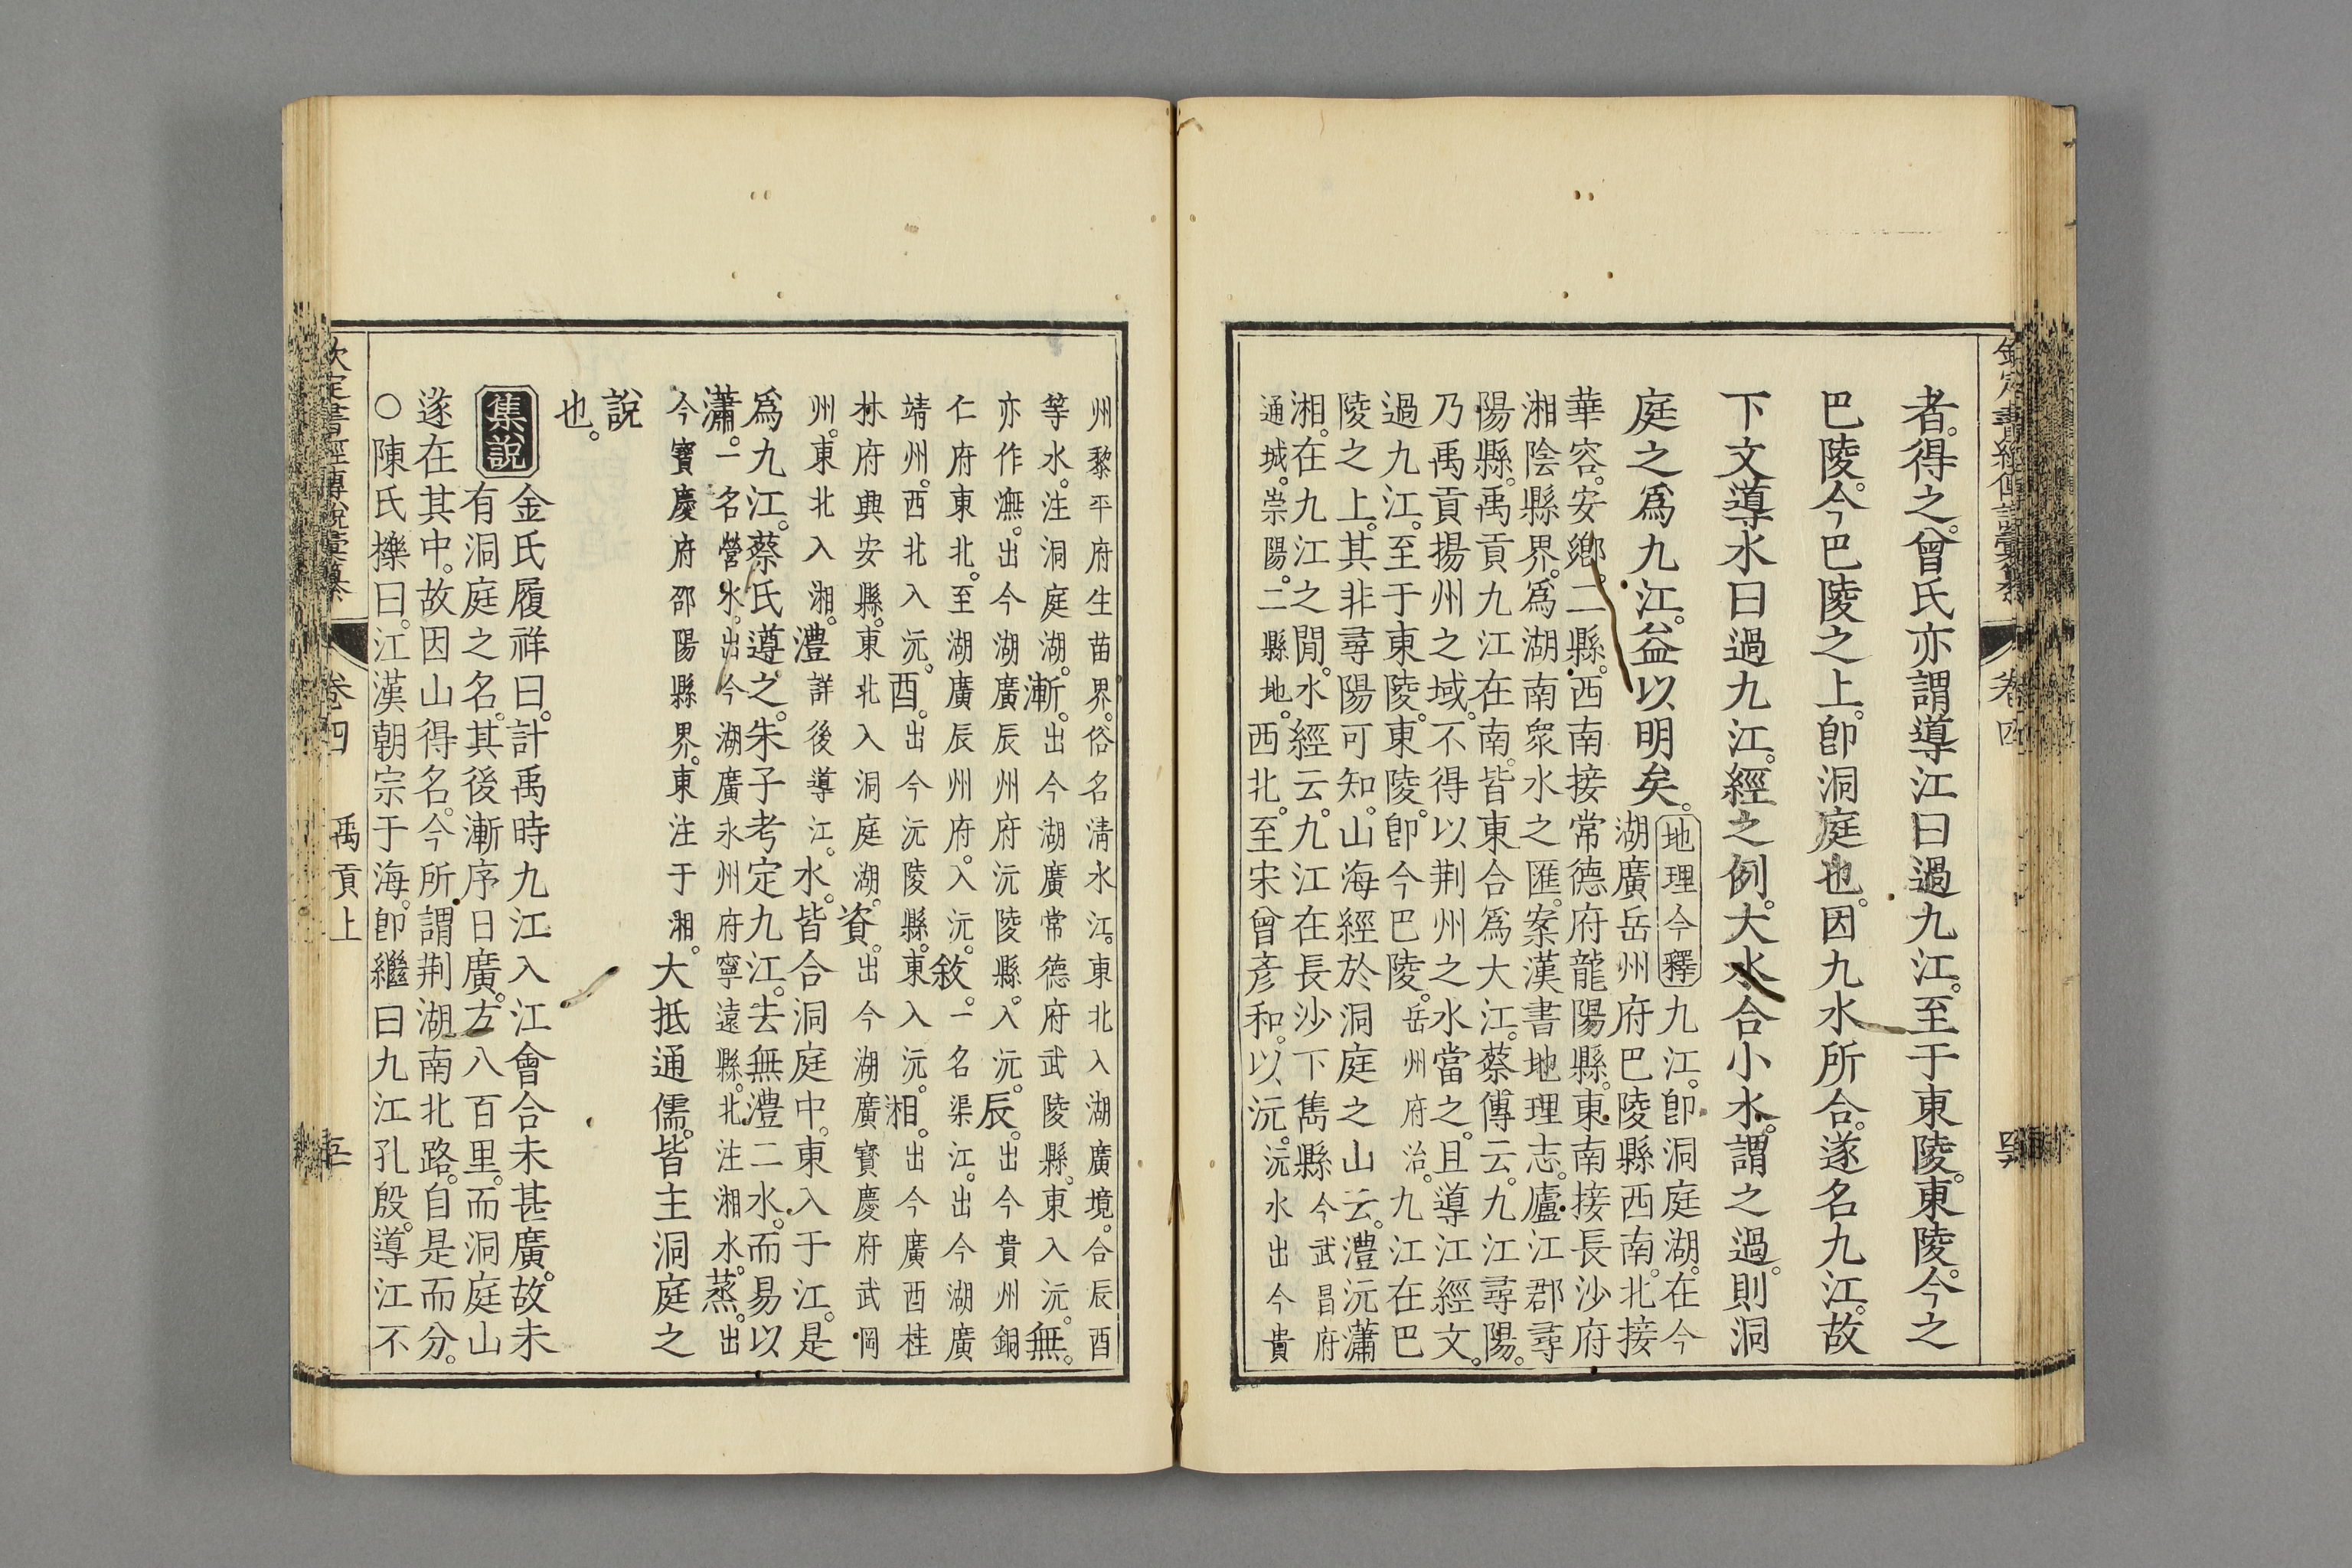 者。得之。曾氏亦謂導江曰過九江。至于東陵。東陵。今之
巴陵。今巴陵之上。卽洞庭也。因九水所合。遂名九江。故
下文導水曰過九江。經之例。大水合小水。謂之過。則洞
庭之爲九江。益以明矣。
地理今釋九江。卽洞庭湖。在今
湖廣岳州府巴陵縣西南。北接
華容。安鄉。二縣。西南接常德府龍陽縣。東南接長沙府
湘陰縣界。爲湖南衆水之匯。案漢書地理志。廬江郡尋
陽縣。禹貢九江在南。皆東合爲大江。蔡傳云。九江尋陽。
乃禹貢揚州之域。不得以荆州之水當之。且導江經文。
過九江。至于東陵。東陵。卽今巴陵。岳州府治。九江在巴
陵之上。其非尋陽可知。山海經於洞庭之山云。澧沅瀟
湘。在九江之閒。水經云。九江在長沙下雋縣今武昌府
通城。崇陽。二縣地。西北。至宋曾彥和。以沅。沅水出今貴
州黎平府生苗界。俗名淸水江。東北入湖廣境。合辰酉
等水。注洞庭湖。漸。出今湖廣常德府武陵縣。東入沅。無。
亦作潕。出今湖廣辰州府沅陵縣。入沅。辰。出今貴州銅
仁府東北。至湖廣辰州府。入沅。敘。一名渠江。出今湖廣
靖州。西北入沅。酉。出今沅陵縣。東入沅。湘。出今廣西桂
林府興安縣。東北入洞庭湖。資。出今湖廣寶慶府武岡
州。東北入湘。澧詳後導江。水。皆合洞庭中。東入于江。是
爲九江。蔡氏遵之。朱子考定九江。去無澧二水。而易以
瀟。一名營水。出今湖廣永州府寧遠縣。北注湘水。蒸。出
今寶慶府邵陽縣界。東注于湘。大抵通儒。皆主洞庭之
說
也。
集說金氏履祥曰。計禹時九江入江會合未甚廣。故未
有洞庭之名。其後漸序日廣。方八百里。而洞庭山
遂在其中。故因山得名。今所謂荆湖南北路。自是而分。
○陳氏櫟曰。江漢朝宗于海。卽繼曰九江孔殷。導江不
欽定書經傳說彙纂 卷四 禹貢上